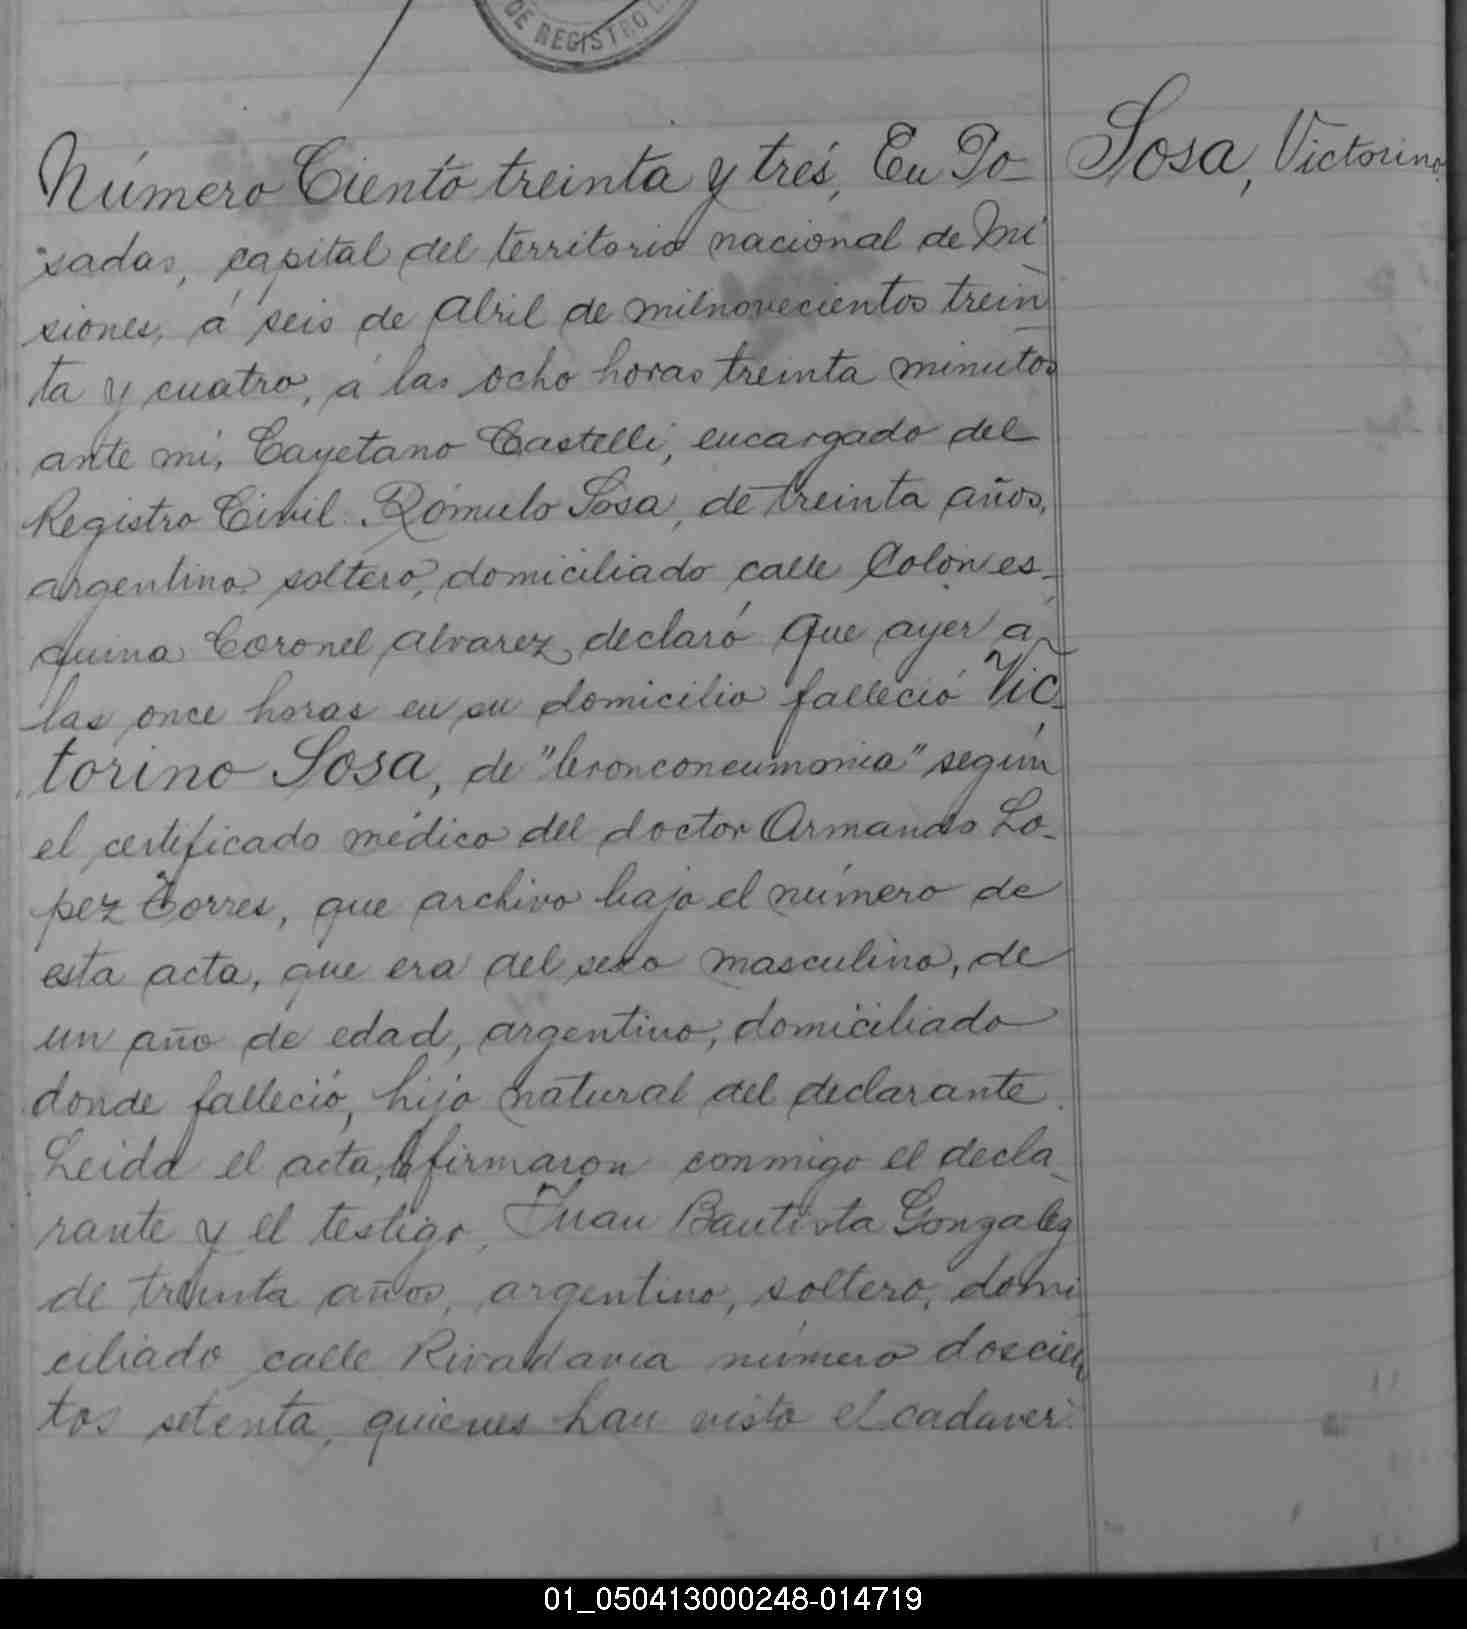 DE REGISTRO
Número Ciento treinta y tres, En Po-
sadas, capital del territorio nacional de Mi
siones, á seis de Abril de milnovecientos trein
ta y cuatro, á las ocho horas treinta minutos
ante mí, Cayetano Castelli, encargado del
Registro Civil. Rómulo Sosa, de treinta años,
argentino, soltero, domiciliado calle Colon es-
quina Coronel Alvarez, declaró Que ayer á
las once horas en su domicilio falleció Vic-
torino Sosa, de "bronconeumonia" según
el certificado médico del doctor Armando Lo-
pez Torres, que archivo bajo el número de
esta acta, que era del sexo masculino, de
un año de edad, argentino, domiciliado
donde falleció, hijo natural del declarante.
Leida el acta, la firmaron conmigo el decla-
rante y el testigo, Juan Bautista Gonzalez
de treinta años, argentino, soltero, domi
ciliado calle Rivadavia número doscien
tos setenta, quienes han visto el cadaver.
Sosa, Victorino
01_050413000248-014719